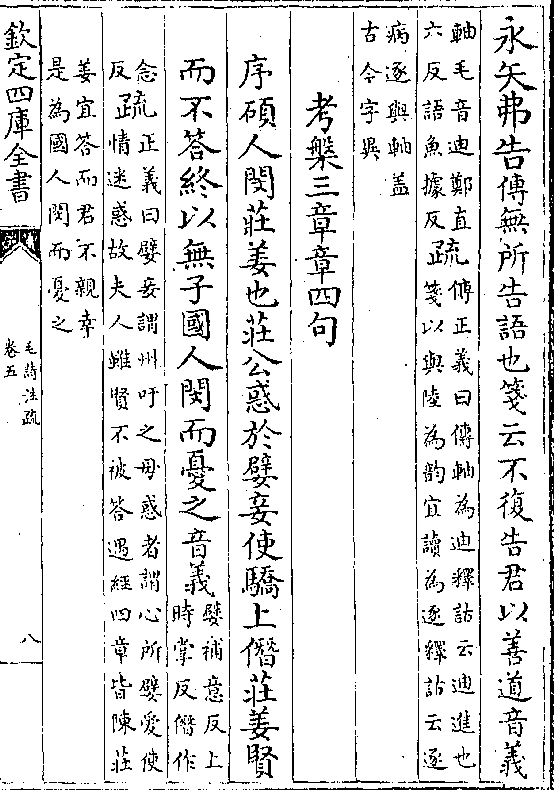 永矢弗告傳無所告語也箋云不復告君以善道音義
軸毛音迪鄭直
六反語魚據反
疏
傳正義曰傳軸為迪釋詁云迪進也
箋以與陸為韵宜讀為逐釋詁云逐
病逐與軸盖
古今字異
考槃三章章四句
序碩人閔莊姜也莊公惑於嬖妾使驕上僭莊姜賢
而不答終以無子國人閔而憂之音義
嬖補意反上
時掌反僭作
念
反
疏
正義曰嬖妾謂州吁之母惑者謂心所嬖愛使
情迷惑故夫人雖賢不被答遇經四章皆陳莊
姜宜答而君不親幸
是為國人閔而憂之
欽定四庫全書
毛詩注疏
卷五
八